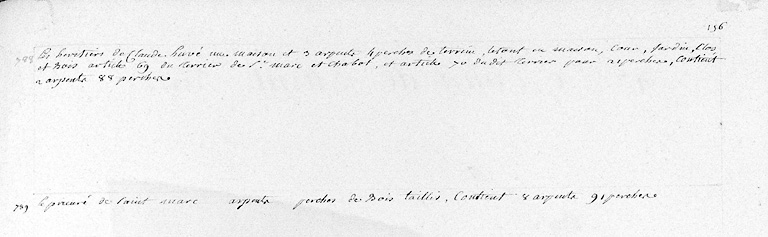 156
788 Les heretiers de Claude huvé une maison et 3 arpents 4 perches de terrein, letout en maison, Cour, Jardin, Clos
et Bois article 69 du terrier de St. marc et Chabot, et article 70 dudit terrier pour 21 perches, Contient
2 arpents 88 perches
789 Le prieuré de Saint marc arpents perches de Bois taillis, Contient 8 arpents 91 perches